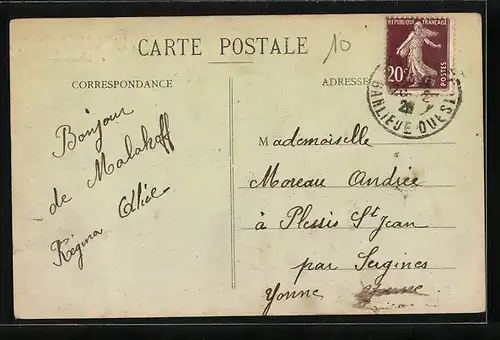 CARTE POSTALE
10
RÉPUBLIQUE FRANÇAISE
20c
POSTES
CORRESPONDANCE
ADRESSE
BANLIEUE OUEST
26
Bonjour
de Malakoff
Régina Alice
Mademoiselle
Moreau Andrée
à Plessis St Jean
par Sergines
Yonne